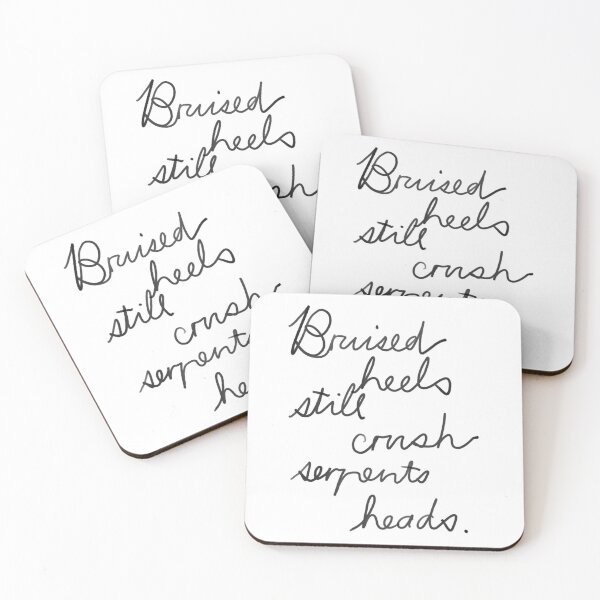 Bruised
heels
still
Bruised
heels
still
crush
Bruised
heels
still
crush
serpents
Bruised
heels
still
crush
serpents
heads.